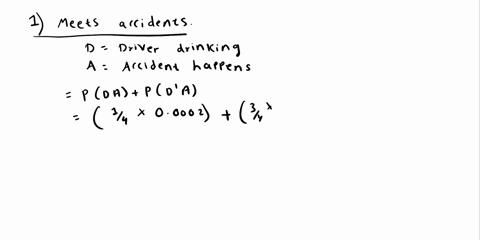 1) Meets accidents.
D = Driver drinking
A = Accident happens
= P(DA) + P(D'A)
= (3/4 × 0.0002) + (3/4 ×